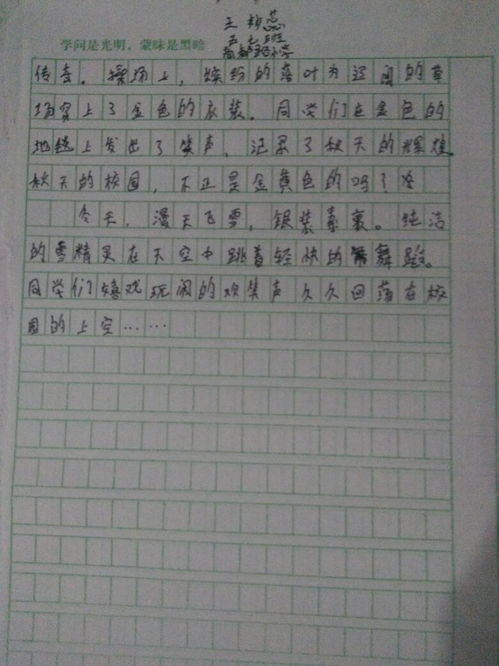 王 蕊
五 七 班
学问是光明，蒙昧是黑暗
传奇。操场上，缤纷的落叶为辽阔的草
场穿上了金色的衣装。同学们在金色的
地毯上发出了笑声，记录了秋天的辉煌
秋天的校园，不正是金黄色的吗？
冬天，漫天飞雪，银装素裹。纯洁
的雪精灵在天空中跳着轻快的舞蹈。
同学们嬉戏玩闹的欢笑声久久回荡在校
园的上空……